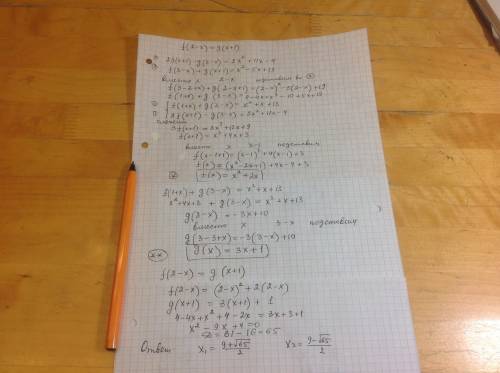 f(2-x) = g(x+1)
2f(x+1) - g(3-x) = 2x² + 11x - 4
f(3-x) + g(x+1) = x² - 5x + 19
вместо x 2-x подставим
f(3-2+x) + g(2-x+1) = (2-x)² - 5(2-x) + 19
f(1+x) + g(3-x) = 4-4x+x²-10+5x+19
f(1+x) + g(3-x) = x² + x + 13
2f(x+1) - g(3-x) = 2x² + 11x - 4
3f(x+1) = 3x² + 12x + 9
f(x+1) = x² + 4x + 3
вместо x x-1 подставим
f(x-1+1) = (x-1)² + 4(x-1) + 3
f(x) = (x²-2x+1) + 4x - 4 + 3
f(x) = x² + 2x
f(1+x) + g(3-x) = x² + x + 13
x² + 4x + 3 + g(3-x) = x² + x + 13
g(3-x) = -3x + 10
вместо x 3-x подставим
g(3-3+x) = -3(3-x) + 10
g(x) = 3x + 1
f(2-x) = g(x+1)
f(2-x) = (2-x)² + 2(2-x)
g(x+1) = 3(x+1) + 1
4-4x+x²+4-2x = 3x+3+1
x² - 9x + 4 = 0
D = 81 - 16 = 65
Ответ x₁ = (9+√65)/2 x₂ = (9-√65)/2